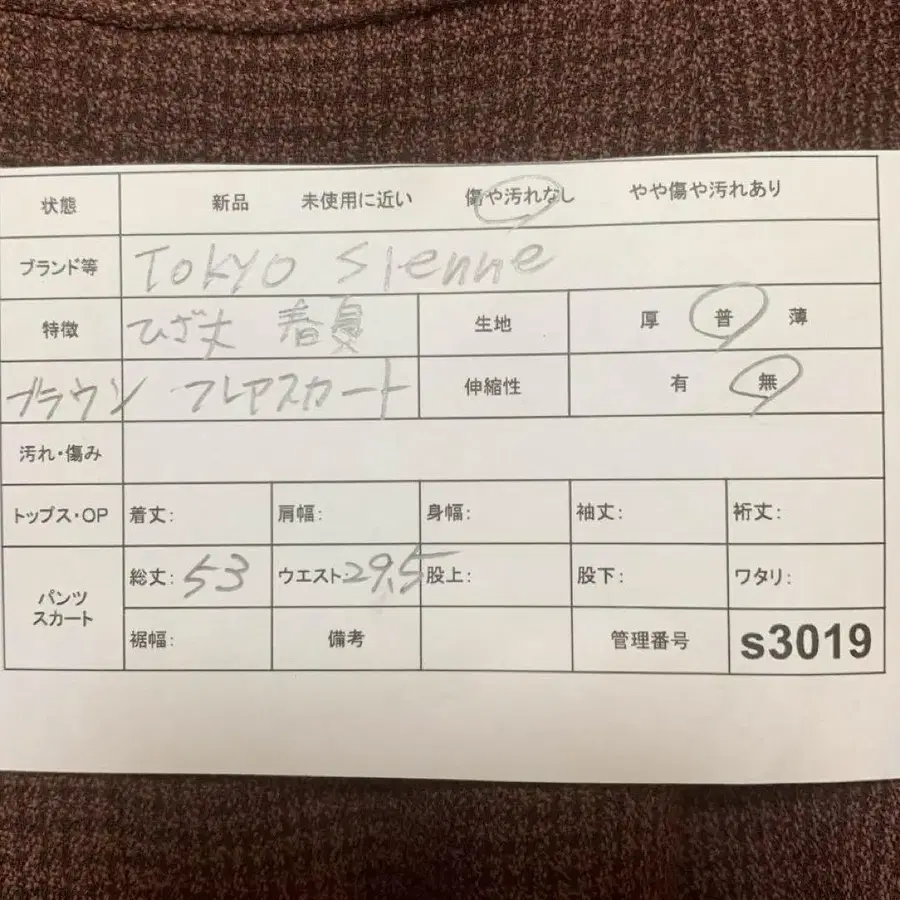 状態 新品 未使用に近い 傷や汚れなし やや傷や汚れあり
ブランド等 Tokyo Sienne
特徴 ひざ丈 春夏 生地 厚 普 薄
ブラウン フレアスカート 伸縮性 有 無
汚れ・傷み
トップス・OP 着丈: 肩幅: 身幅: 袖丈: 裄丈:
パンツ スカート 総丈: 53 ウエスト: 29.5 股上: 股下: ワタリ:
裾幅: 備考 管理番号 s3019